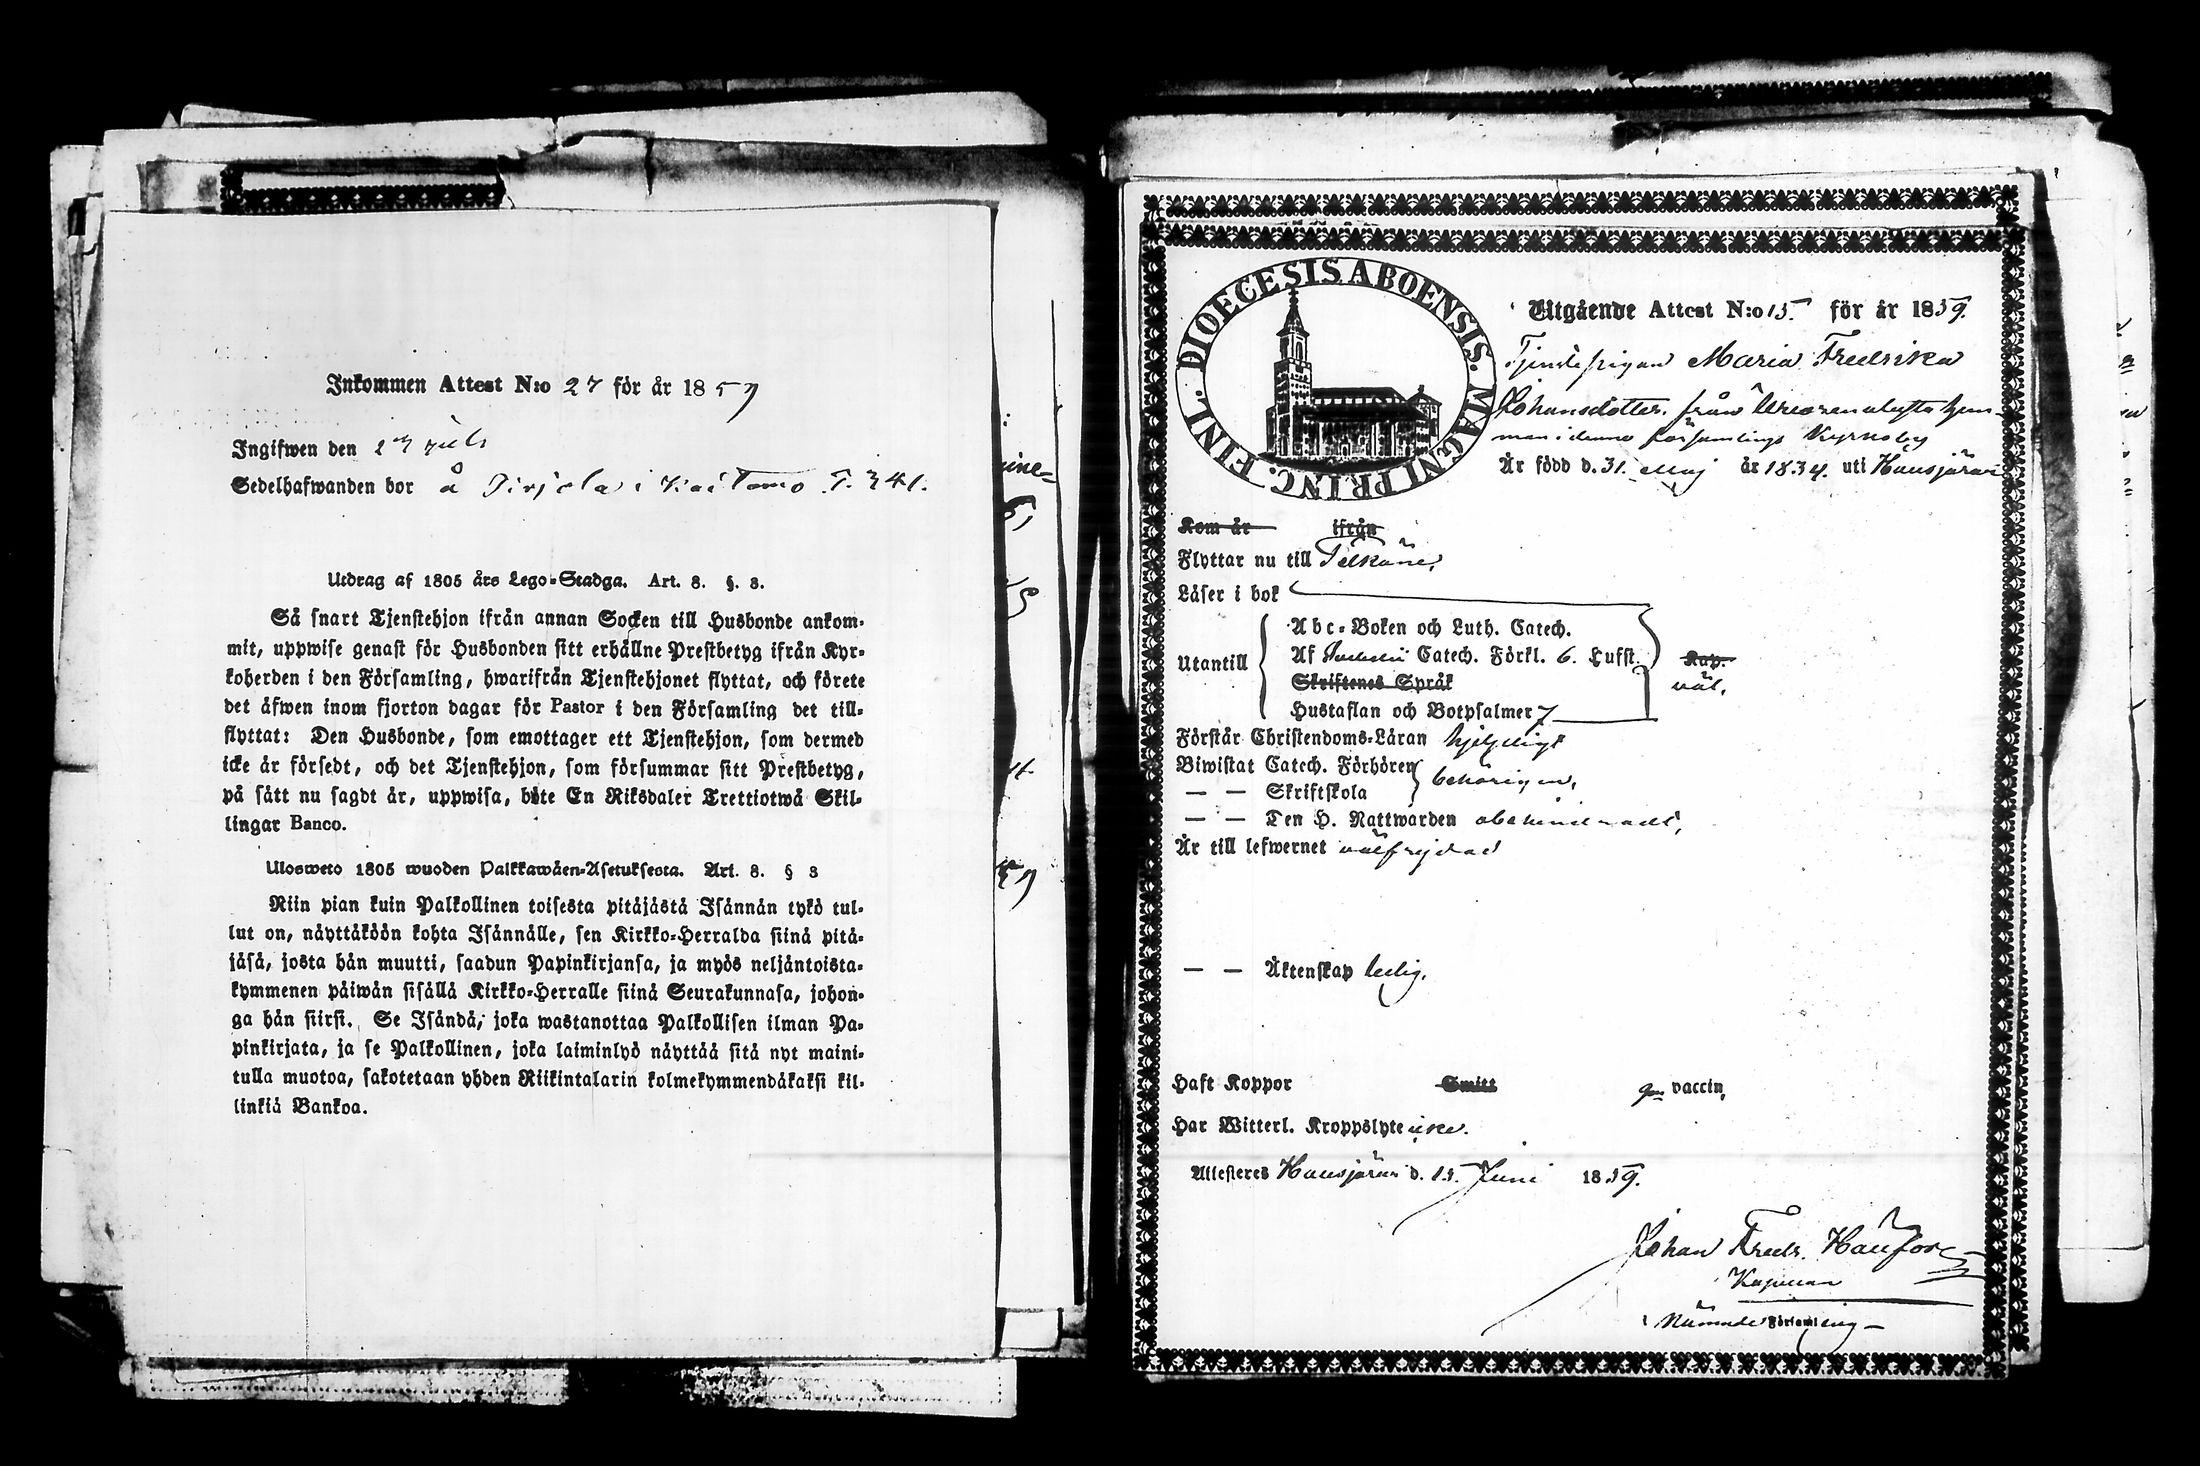 Inkommen Attest N:o 27 för år 1859
Ingifwen den 27 juli
Sedelhafwanden bor å Pirjola i Kaitamo T. 341.
Utdrag af 1805 års Lego-Stadga. Art. 8. §. 3.
Så snart Tjenstehjon ifrån annan Socken till Husbonde ankom-
mit, uppwise genast för Husbonden sitt erhållne Prestbetyg ifrån Kyr-
koherden i den Församling, hwarifrån Tjenstehjonet flyttat, och förete
det äfwen inom fjorton dagar för Pastor i den Församling det till-
flyttat: Den Husbonde, som emottager ett Tjenstehjon, som dermed
icke är försedt, och det Tjenstehjon, som försummar sitt Prestbetyg,
på sätt nu sagdt är, uppwisa, böte En Riksdaler Trettiotwå Skil-
lingar Banco.
Ulosweto 1805 wuoden Palkkawäen-Asetuksesta. Art. 8. § 3
Niin pian kuin Palkollinen toisesta pitäjästä Isännän tykö tul-
lut on, näyttäköön kohta Isännälle, sen Kirkko-Herralda siinä pitä-
jäsä, josta hän muutti, saadun Papinkirjansa, ja myös neljäntoista-
kymmenen päiwän sisällä Kirkko-Herralle siinä Seurakunnasa, johon-
ga hän siirsi. Se Isändä, joka wastanottaa Palkollisen ilman Pa-
pinkirjata, ja se Palkollinen, joka laiminlyö näyttää sitä nyt maini-
tulla muotoa, sakotetaan yhden Riikintalarin kolmekymmendäkaksi kil-
linkiä Bankoa.
DIOECESIS ABOENSIS. MAGNI PRINC. FINL.
Utgående Attest N:o 15. för år 1859.
Tjenstepigan Maria Fredrika
Johansdotter. från hem-
man i denna församlings Kyrkoby
Är född d. 31. Maj år 1834. uti Hausjärvi
Kom år ifrån
Flyttar nu till Pelkäne,
Läser i bok
Utantill
Abc-Boken och Luth. Catech.
Af Catech. Förkl. 6. Hufst.
Skriftenes Språk
Hustaflan och Botpsalmer 7
Kap.
väl.
Förstår Christendoms-Läran hjelpligt
Biwistat Catech. Förhören
— — Skriftskola
behörigen,
— — Den H. Nattwarden obehindradt,
Är till lefwernet välfrejdad
— — Äktenskap ledig.
Haft Koppor Smitt gm vaccin,
Har Witterl. Kroppslyte icke.
Attesteres Hausjärvi d. 15. Juni 1859.
Johan Fredr.
Kapellan
i Nämnde Församling